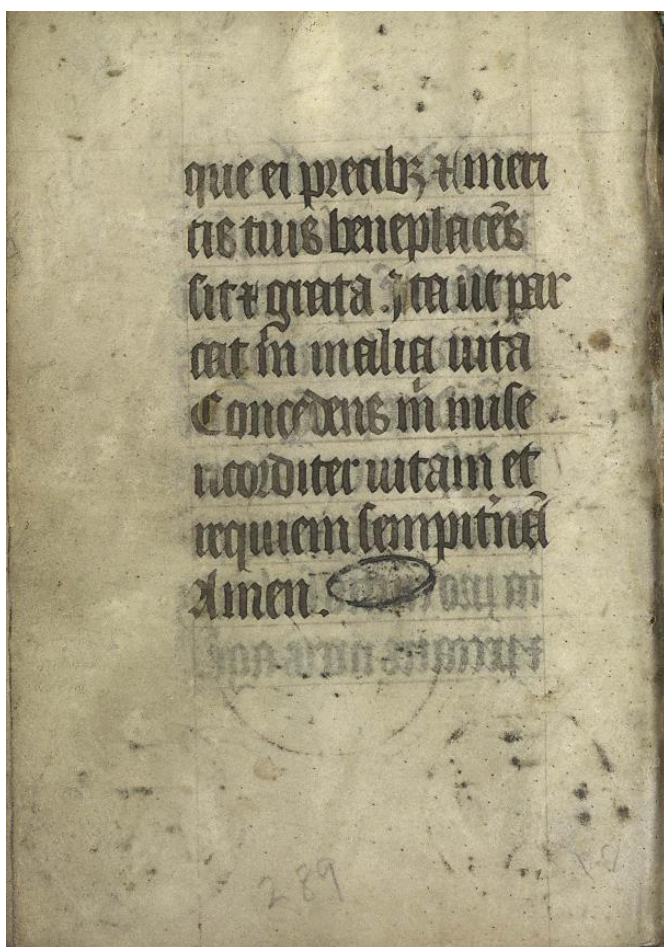 que ei precibꝫ ⁊ meri
tis tuis beneplacēs
sit ⁊ grata. Ita ut par
cat m̄ in alia uita
Concedens m̄ mise
ricorditer uitam et
requiem sempit̾nā
Amen.
289